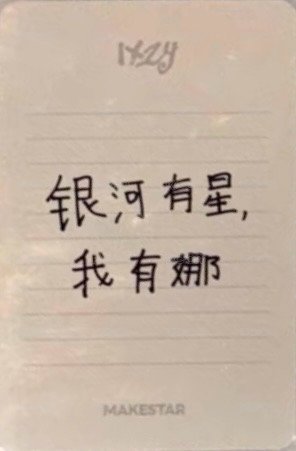 ITZY
银河有星,
我有娜
MAKESTAR